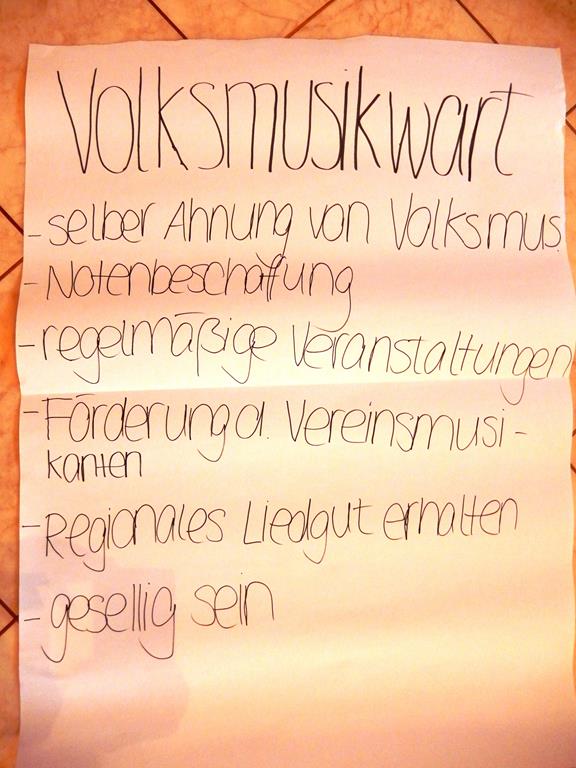 Volksmusikwart
- selber Ahnung von Volksmus.
- Notenbeschaffung
- regelmäßige Veranstaltungen
- Förderung d. Vereinsmusi-
kanten
- Regionales Liedgut erhalten
- gesellig sein